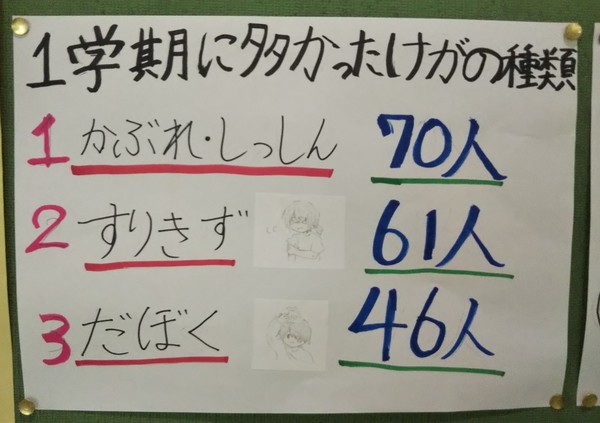 1学期に多かったけがの種類
1 かぶれ・しっしん 70人
2 すりきず 61人
3 だぼく 46人